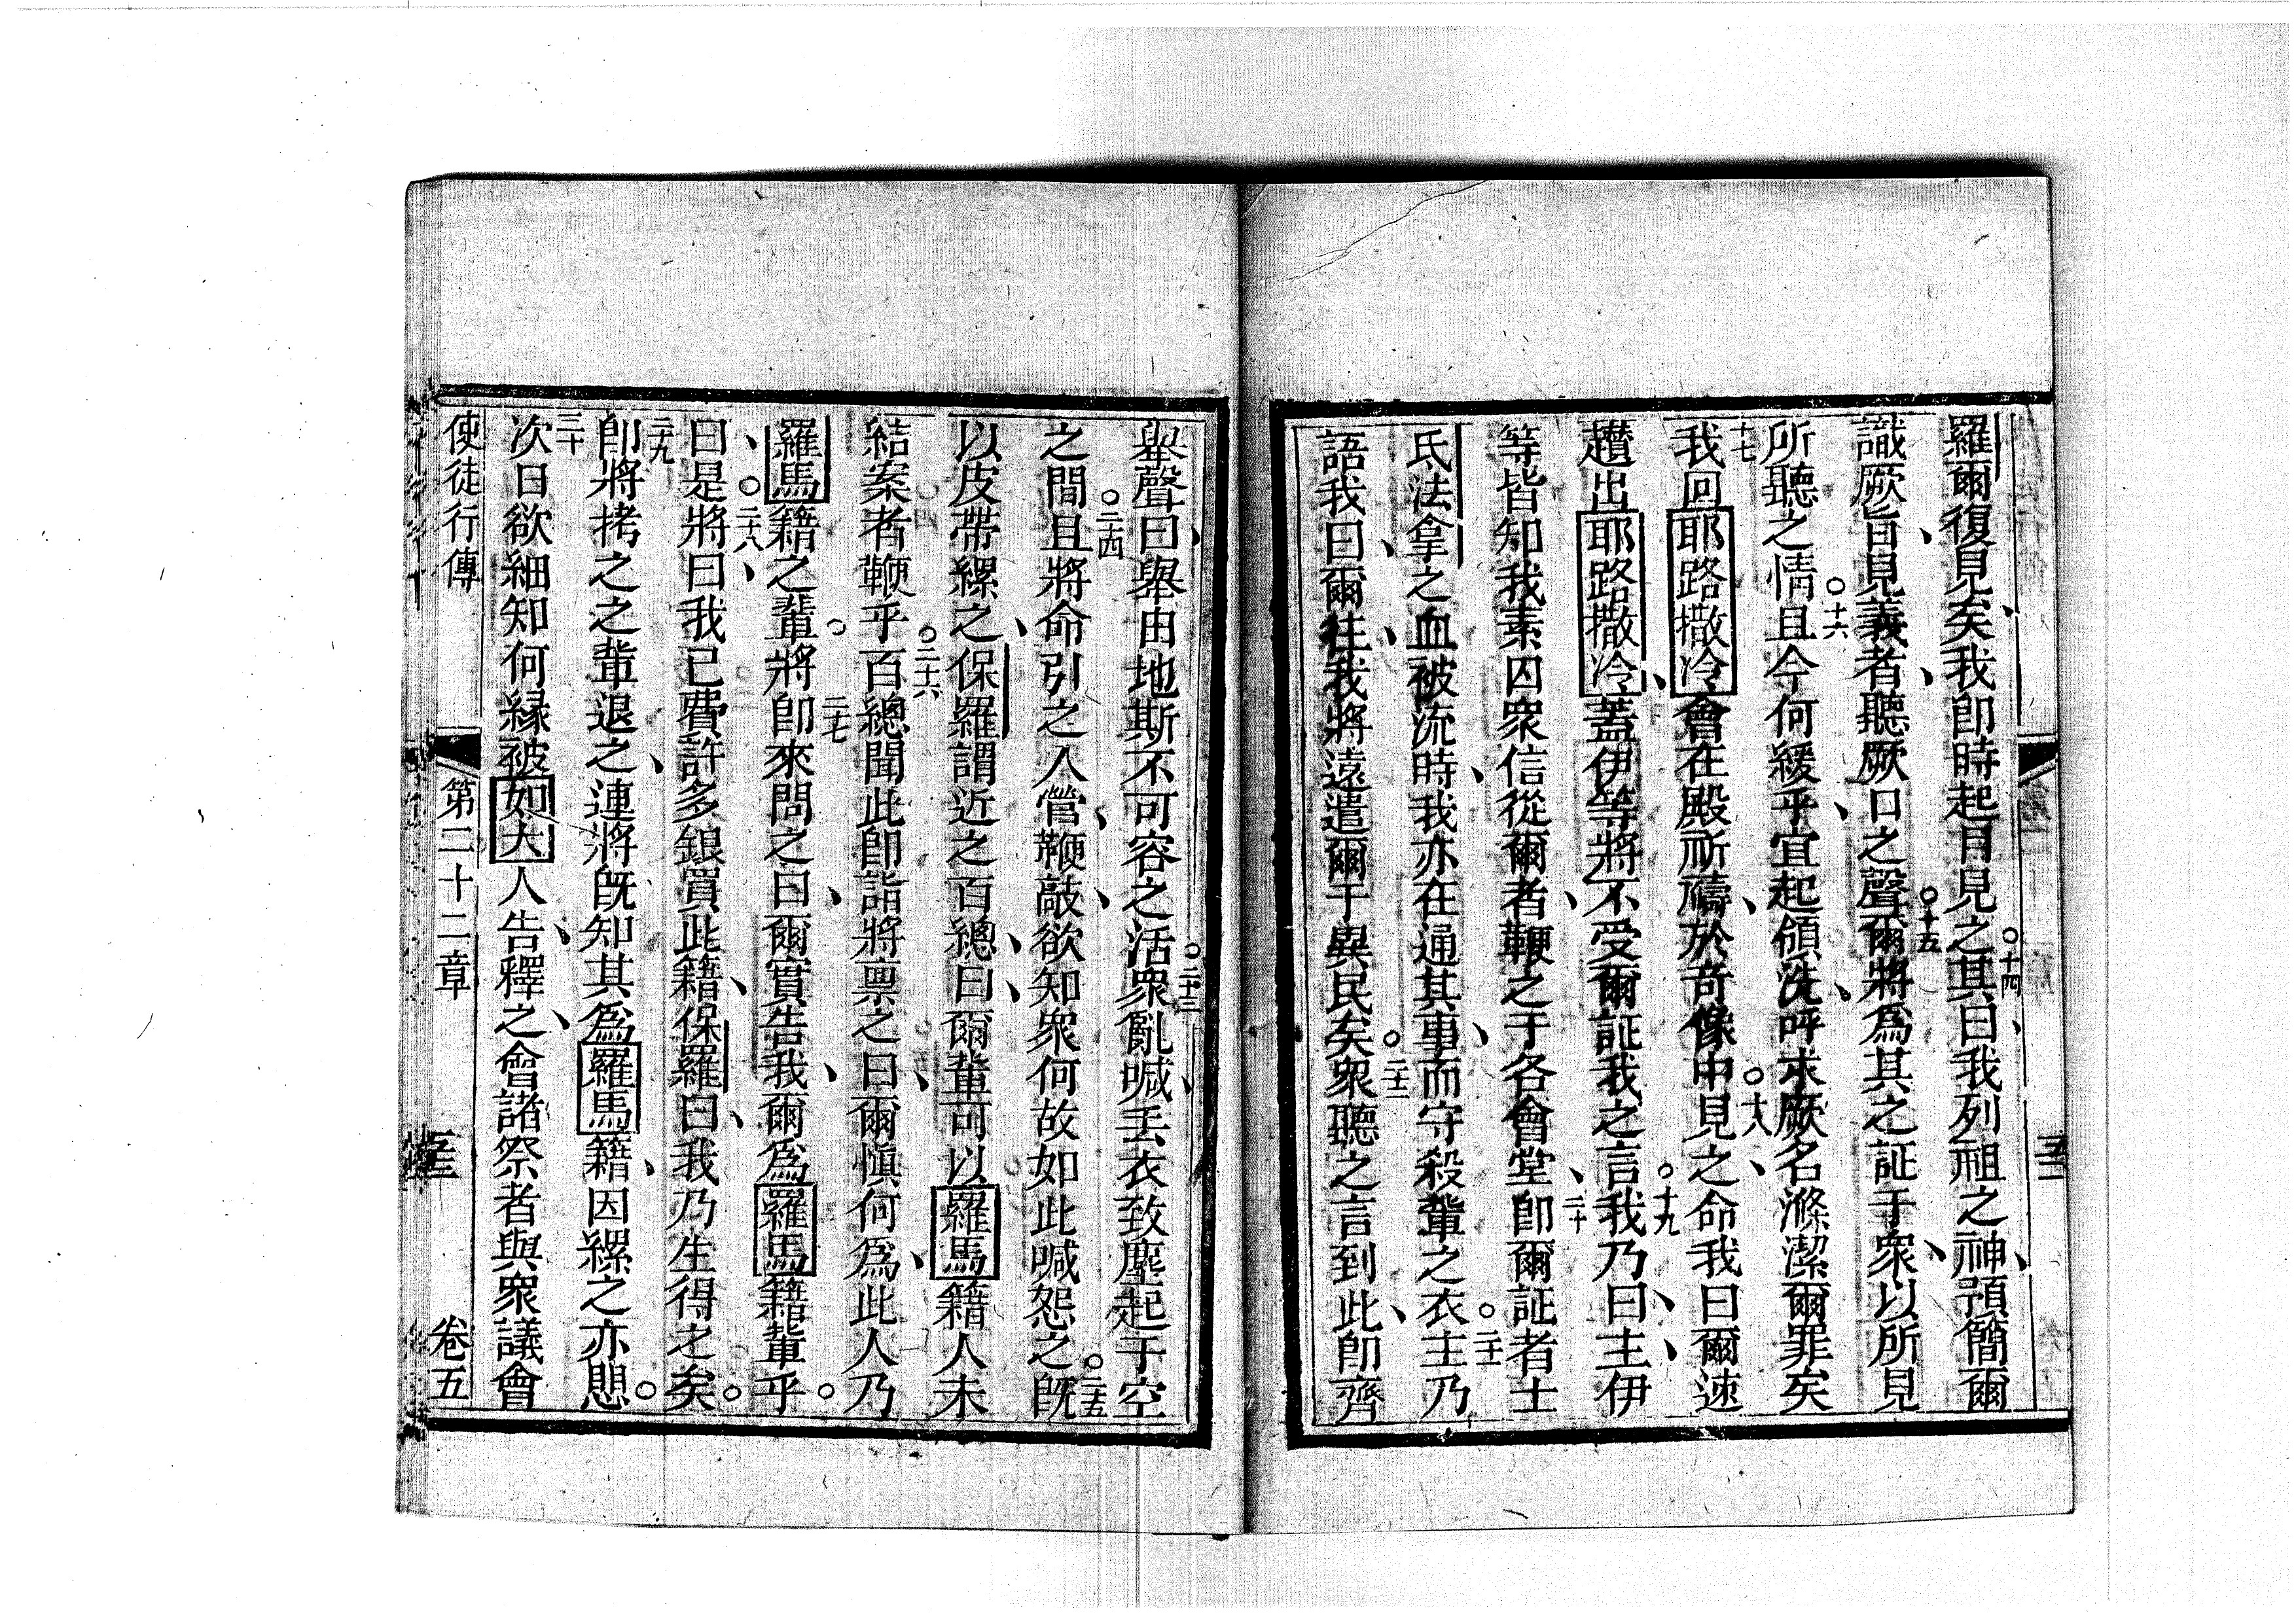 羅爾復見矣、我即時起目見之。十四其曰、我列祖之神、預簡爾
識厥旨、見義者、聽厥口之聲。十五爾將為其之証于衆、以所見
所聽之情。十六且今何緩乎、宜起領洗、呼求厥名滌潔爾罪矣
十七我回耶路撒冷會在殿祈禱、於奇像中。十八見之、命我曰爾速
趲出耶路撒冷、蓋伊等將不受爾証我之言。十九我乃曰、主、伊
等皆知我素囚衆信從爾者、鞭之于各會堂、二十即爾証者士
氏法拿之血被流時、我亦在通其事、而守殺輩之衣。二十一主乃
語我曰、爾往、我將遠遣爾于異民矣。二十二衆聽之言到此、即齊
舉聲曰、舉由地斯不可容之活。二十三衆亂喊、丟衣致塵起于空
之間。二十四且將命引之入營、鞭敲、欲知衆何故如此喊怨之。二十五既
以皮帶縲之、保羅謂近之百總、曰、爾輩可以羅馬籍人未
結案者鞭乎。二十六百總聞此即詣將禀之曰、爾愼何為、此人乃
羅馬籍之輩。二十七將即來問之曰、爾實告我、爾為羅馬籍輩乎。
曰、是。二十八將曰、我已費許多銀買此籍、保羅曰、我乃生得之矣。
二十九即將拷之之輩退之、連將旣知其為羅馬籍、因縲之亦思。
三十次日欲細知何縁被如大人告、釋之、會諸祭者與衆議會
使徒行傳 第二十二章 卷五